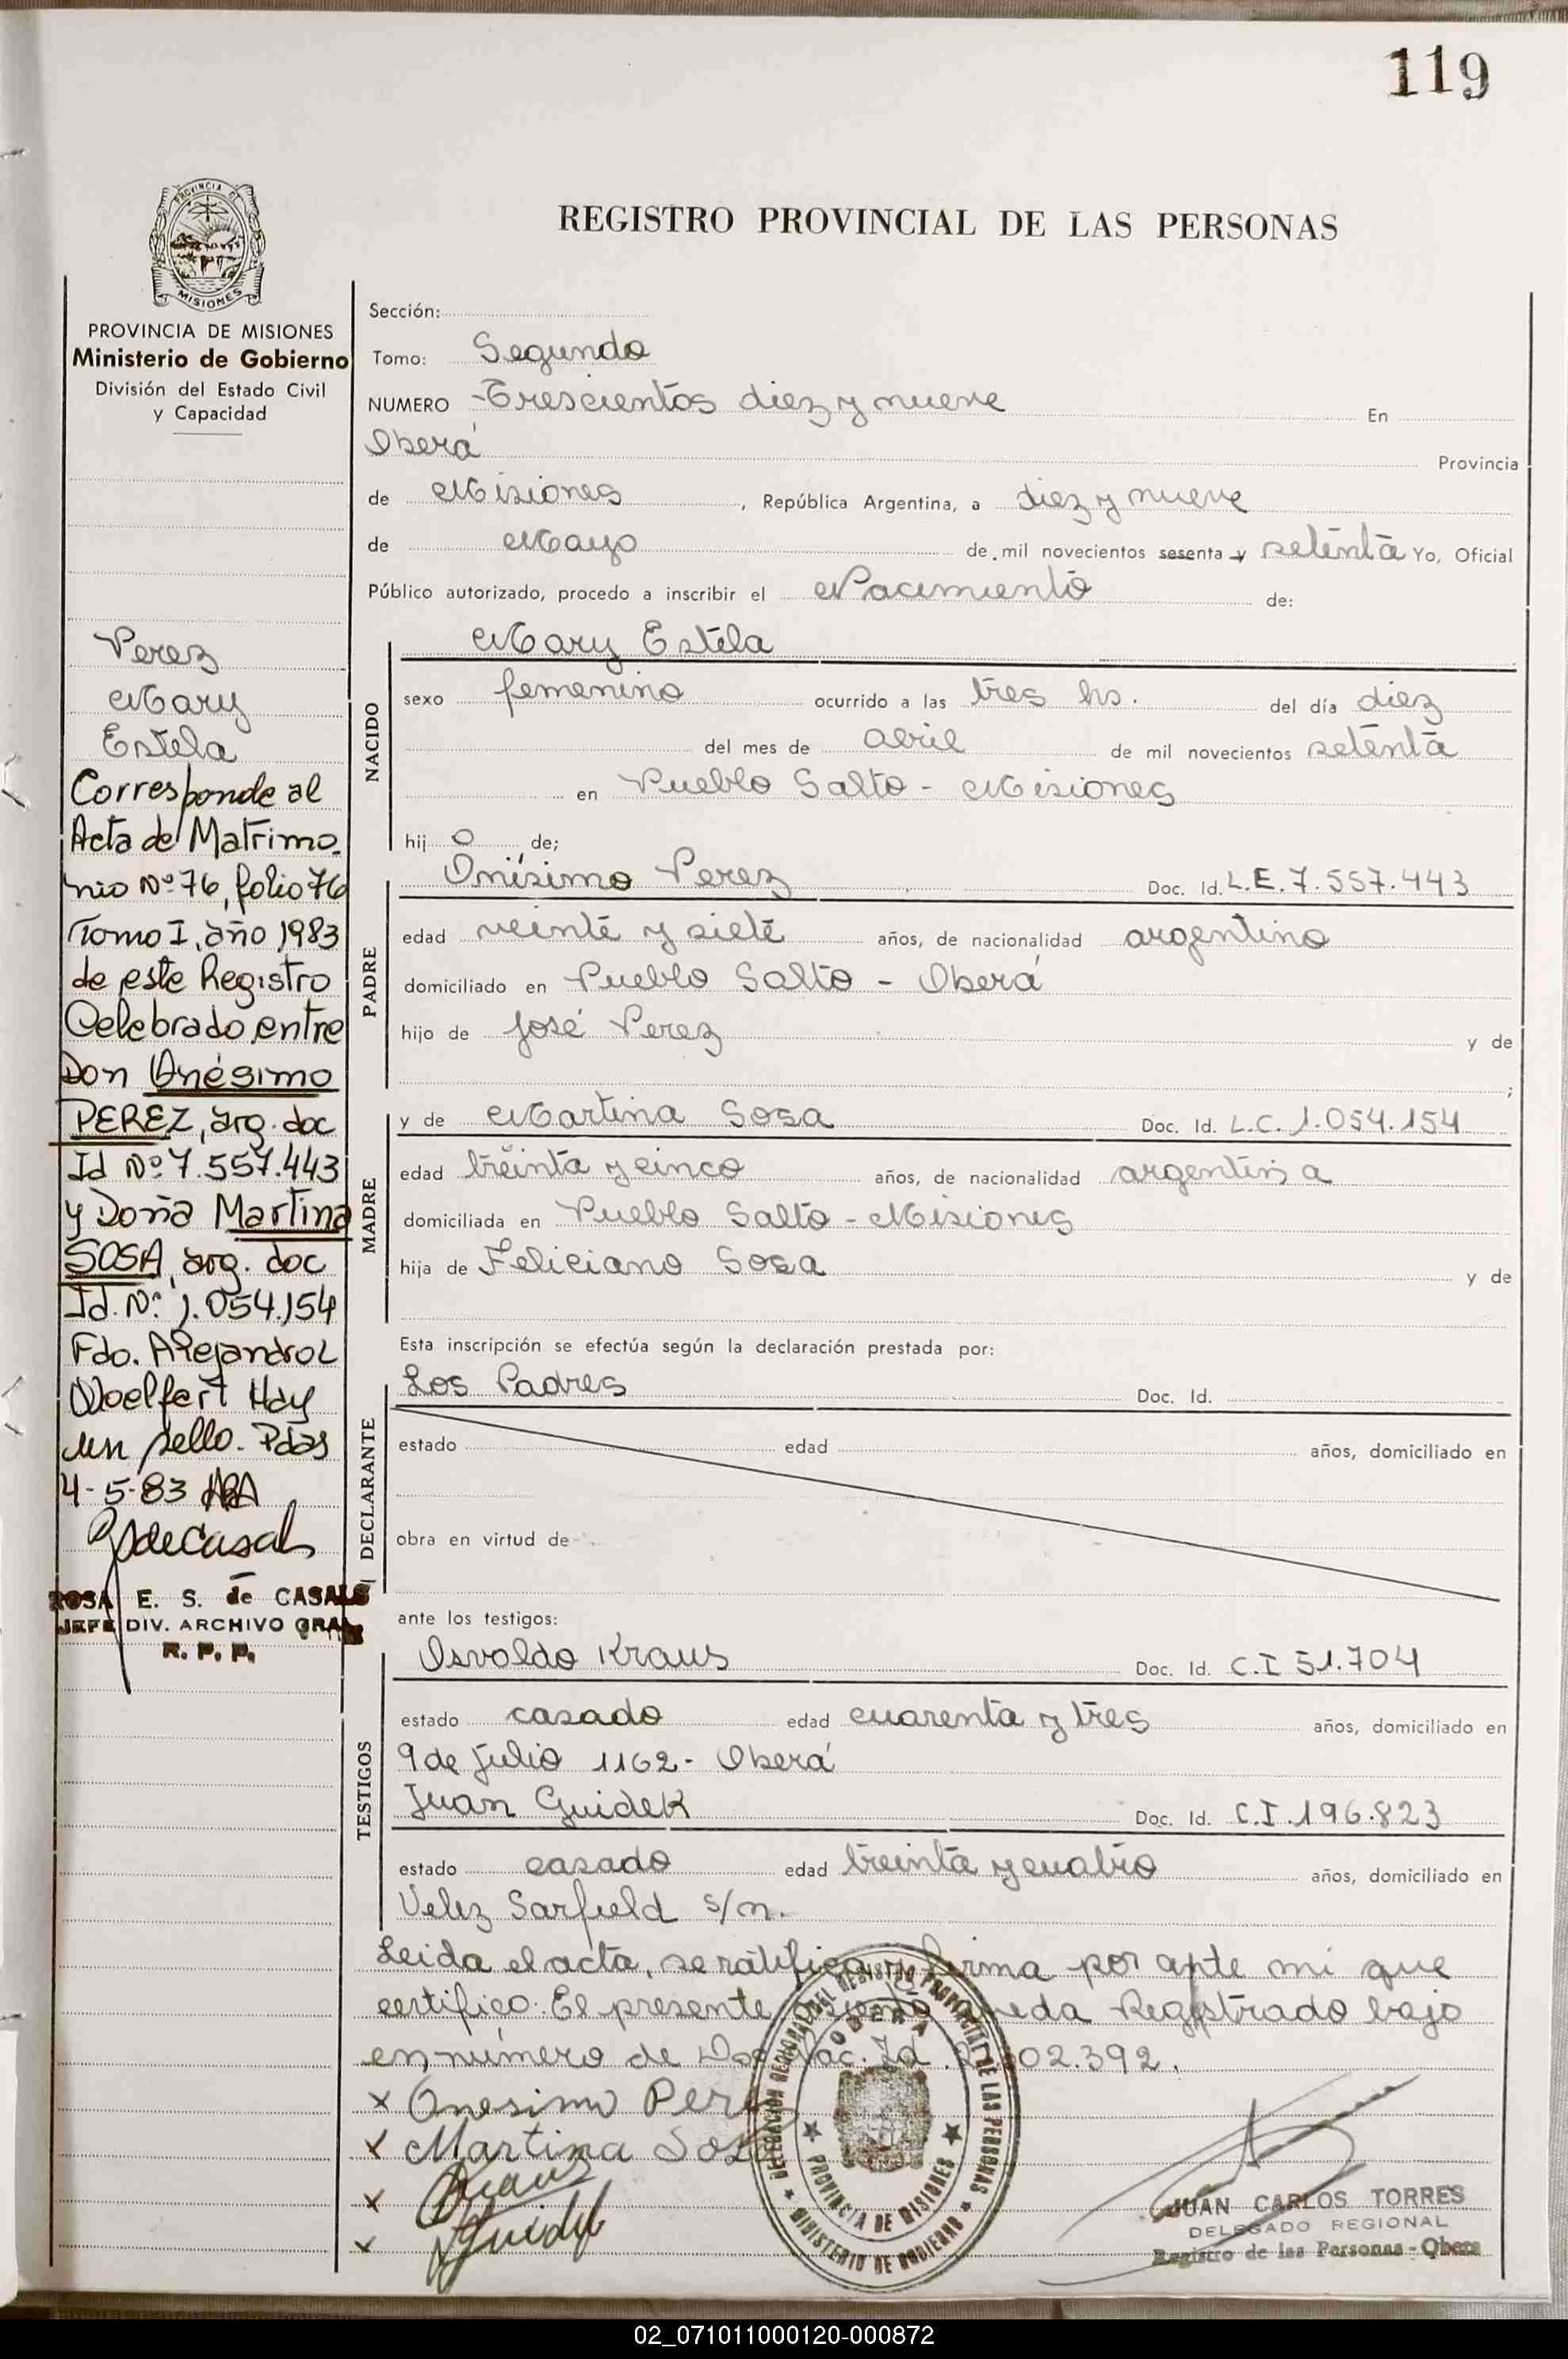 119
PROVINCIA DE
MISIONES
REGISTRO PROVINCIAL DE LAS PERSONAS
PROVINCIA DE MISIONES
Ministerio de Gobierno
División del Estado Civil
y Capacidad
Perez
Mary
Estela
Corresponde al
Acta de Matrimo-
nio Nº 76, folio 76
Tomo I, año 1983
de este Registro
Celebrado entre
Don Onésimo
PEREZ, arg. doc
Id Nº 7.557.443
y Doña Martina
SOSA, arg. doc
Id. Nº 1.054.154
Fdo. Alejandro L
Woelfert Hay
un sello. Pdas
4-5-83
ROSA E. S. de CASALS
JEFE DIV. ARCHIVO GRAL
R. P. P.
Sección:
Tomo: Segundo
NUMERO Trescientos diez y nueve En
Oberá Provincia
de Misiones, República Argentina, a diez y nueve
de Mayo de mil novecientos sesenta y setenta Yo, Oficial
Público autorizado, procedo a inscribir el Nacimiento de:
NACIDO
Mary Estela
sexo femenino ocurrido a las tres hs. del día diez
del mes de abril de mil novecientos setenta
en Pueblo Salto - Misiones
hij o de;
PADRE
Onísimo Perez Doc. Id. L.E. 7.557.443
edad veinte y siete años, de nacionalidad argentino
domiciliado en Pueblo Salto - Oberá
hijo de José Perez y de
;
MADRE
y de Martina Sosa Doc. Id. L.C. 1.054.154
edad treinta y cinco años, de nacionalidad argentina
domiciliada en Pueblo Salto - Misiones
hija de Feliciano Sosa y de
Esta inscripción se efectúa según la declaración prestada por:
DECLARANTE
Los Padres Doc. Id.
estado edad años, domiciliado en
obra en virtud de
ante los testigos:
TESTIGOS
Osvaldo Kraus Doc. Id. C.I 51.704
estado casado edad cuarenta y tres años, domiciliado en
9 de Julio 1162 - Oberá
Juan Guidek Doc. Id. C.I. 196.823
estado casado edad treinta y cuatro años, domiciliado en
Velez Sarfield s/n.
Leida el acta, se ratifica y firma por ante mi que
certifico: El presente asiento queda Registrado bajo
en número de Doc. Nac. Id. 02.392.
x Onesimo Perez
x Martina Sosa
x Kraus
x Guidek
DELEGACION REGIONAL DEL REGISTRO PROVINCIAL DE LAS PERSONAS
OBERA
PROVINCIA DE MISIONES
MINISTERIO DE GOBIERNO
JUAN CARLOS TORRES
DELEGADO REGIONAL
Registro de las Personas - Obera
02_071011000120-000872